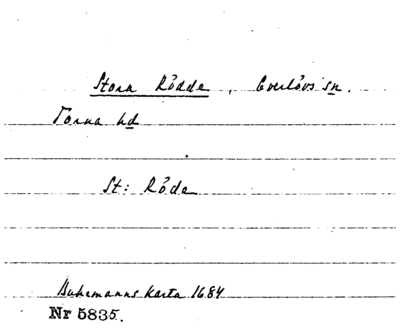 Stora Rödde, Everlövs sn.
Torna hd
St: Röde
Buhrmanns karta 1684
Nr 5835.